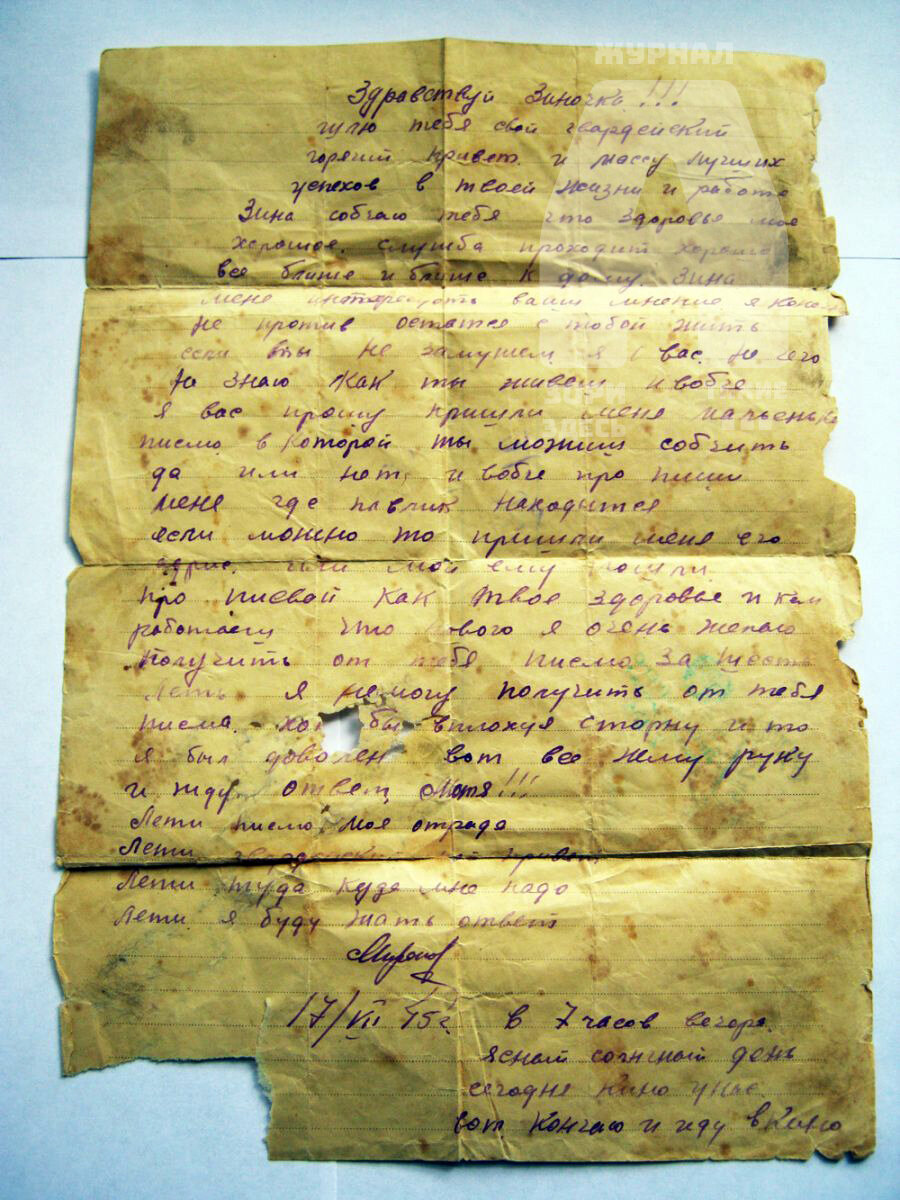 ЖУРНАЛ
Здравствуй Зиночка!!!
шлю тебя свой гвардейский
горячий привет. и массу лучших
успехов в твоей жизни и работе
Зина собчаю тебя что здоровье мое
хорошое. служба проходит хорошо
все ближе и ближе к дому. Зина
мене ваш мнение я
не против остатся с тобой жить
если ты не замужем я с вас. не чего
не знаю как ты живеш и вобче
я вас прошу пришли мене маленько
писмо в которой ты можиш собчить
да или нет, и вобче про пиши
мене где павлик находится
если можно то пришли мене его
адрис. или мой ему пошли.
про писвай как твое здоровье и кем
работаеш что нового я очень желаю
получить от тебя писмо за шесть
леть я немогу получить от тебя
писма. бы вплохуя сторну и то
я был доволен вот все жму руку
и жду ответ, Мотя!!!
Лети писмо моя отрада
Лети гвардейский мой привет
Лети туда куда мне надо
Лети я буду жать ответ
17/VII 45г. в 7 часов вечера.
ясный сонгный день
сегодня кино у нас.
вот кончаю и иду в кино